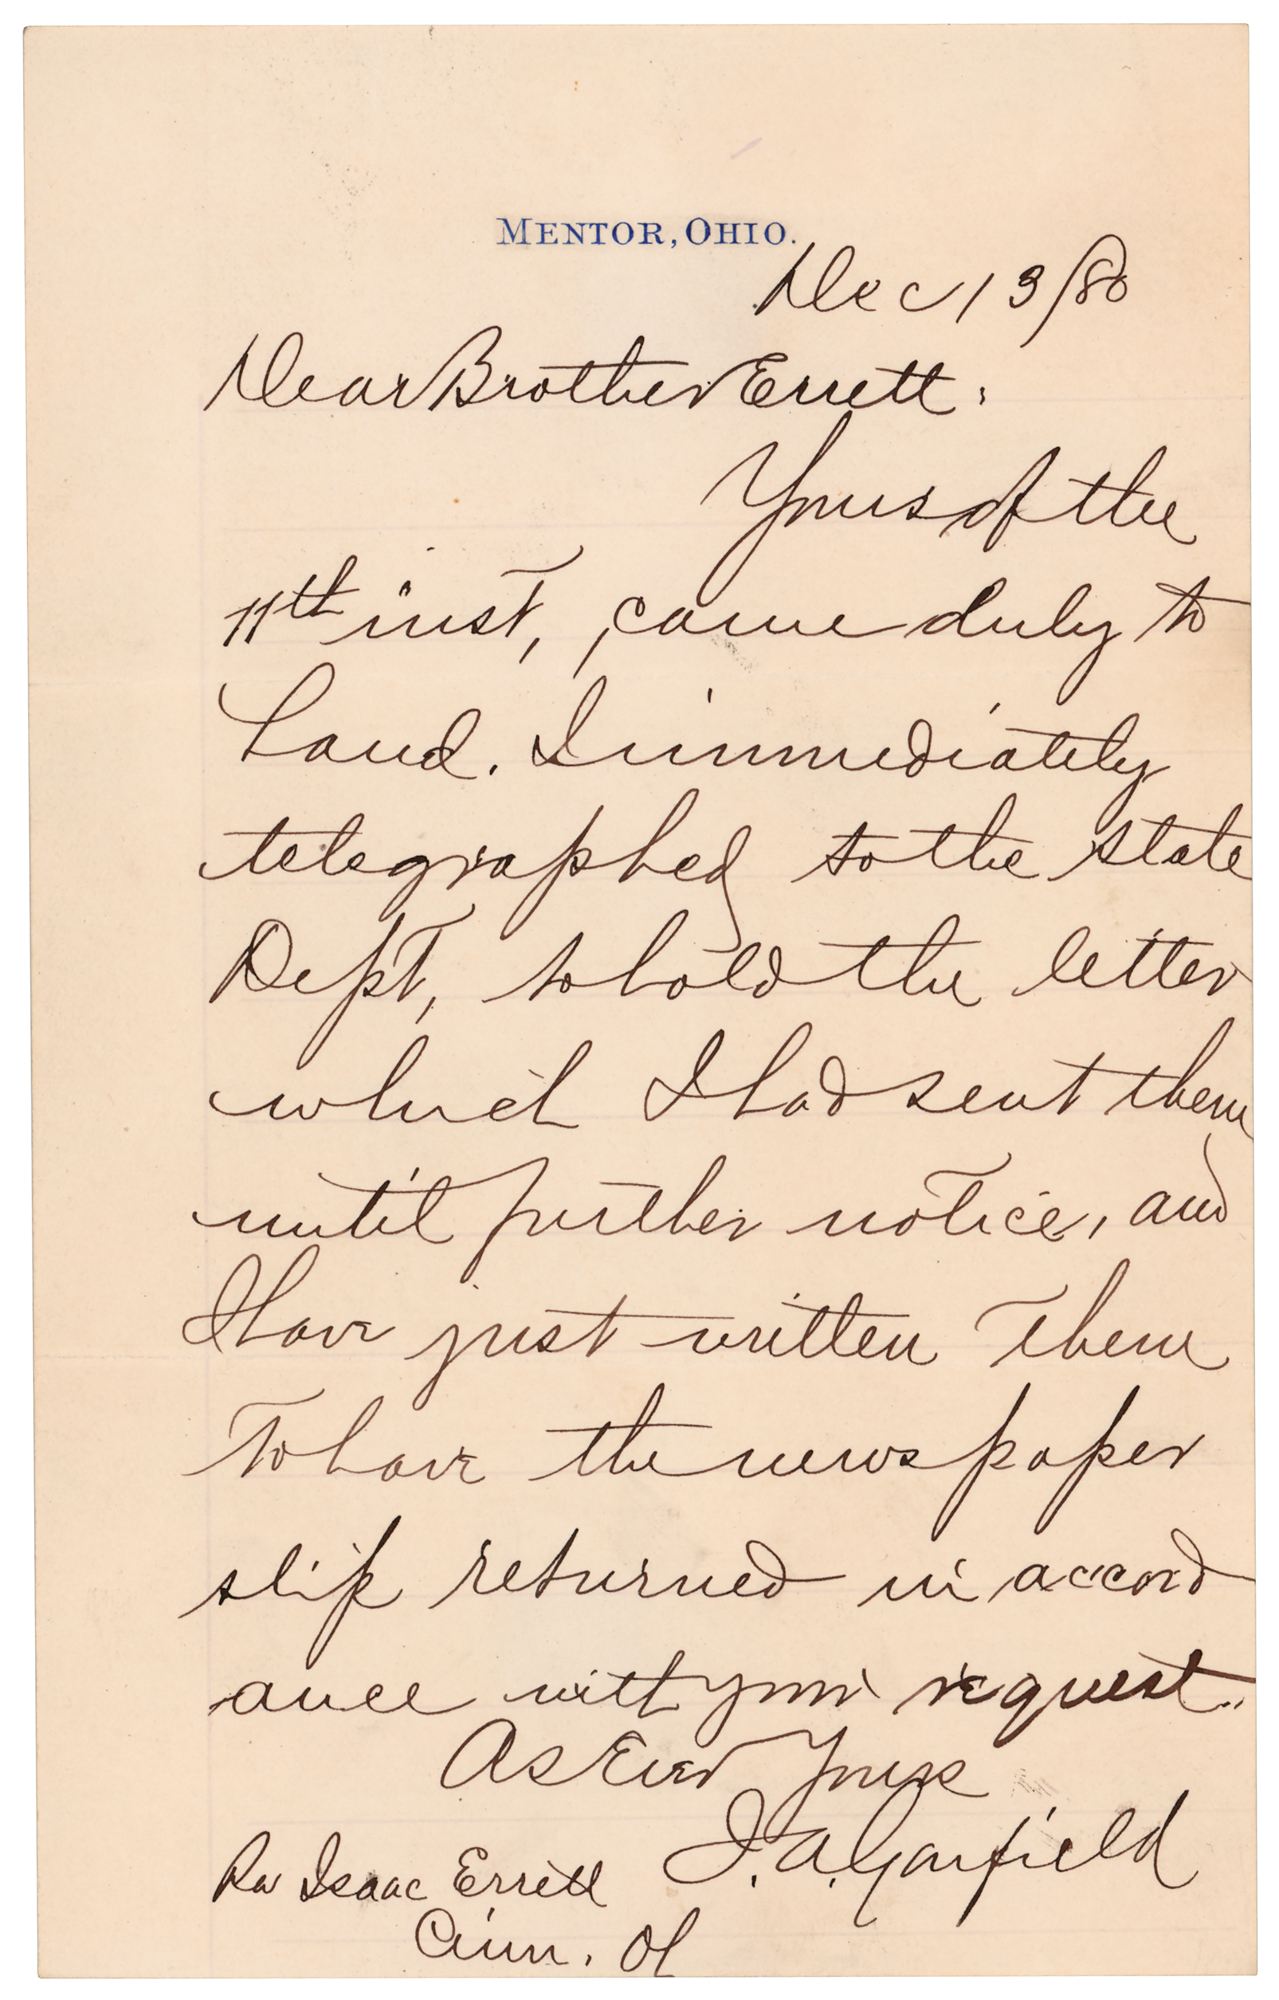 MENTOR, OHIO.
Dec 13/80
Dear Brother Errett:
Yours of the
11th inst, came duly to
hand. I immediately
telegraphed to the State
Dept, to hold the letter
which I had sent them
until further notice, and
I have just written them
to have the newspaper
slip returned in accord
ance with your request.
As Ever Yours
J. A. Garfield
Rev Isaac Errett
Cinn. Oh